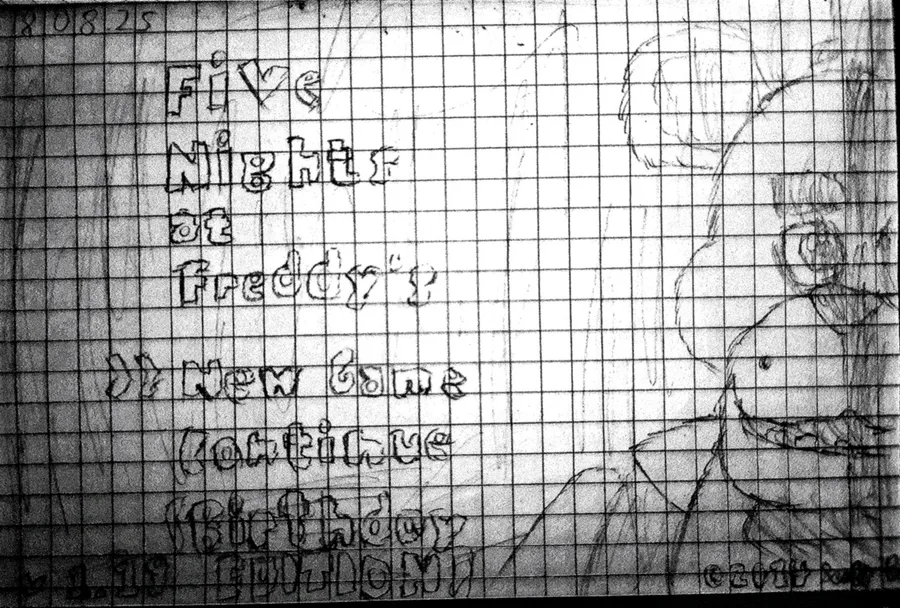 8.08.25
Five
Nights
at
Freddy's
》》 New Game
Continue
(Birthday
EDITION)
v 1.19
©2014